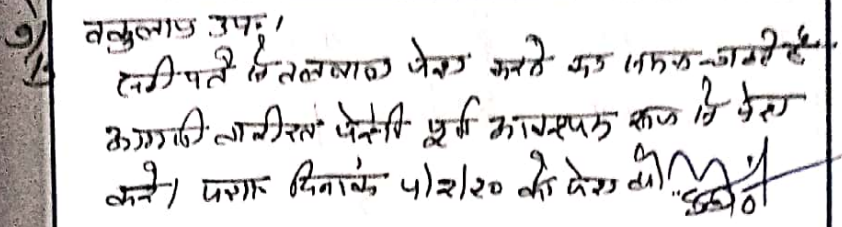 वकुलाय उप.।
सही पते व तलवाना पेश करने का समय चाहते है.
आगामी तारीख पेशी पूर्व आवश्यक रूप से पेश
करे। पत्रा. दिनांक 4/2/20 को पेश हो